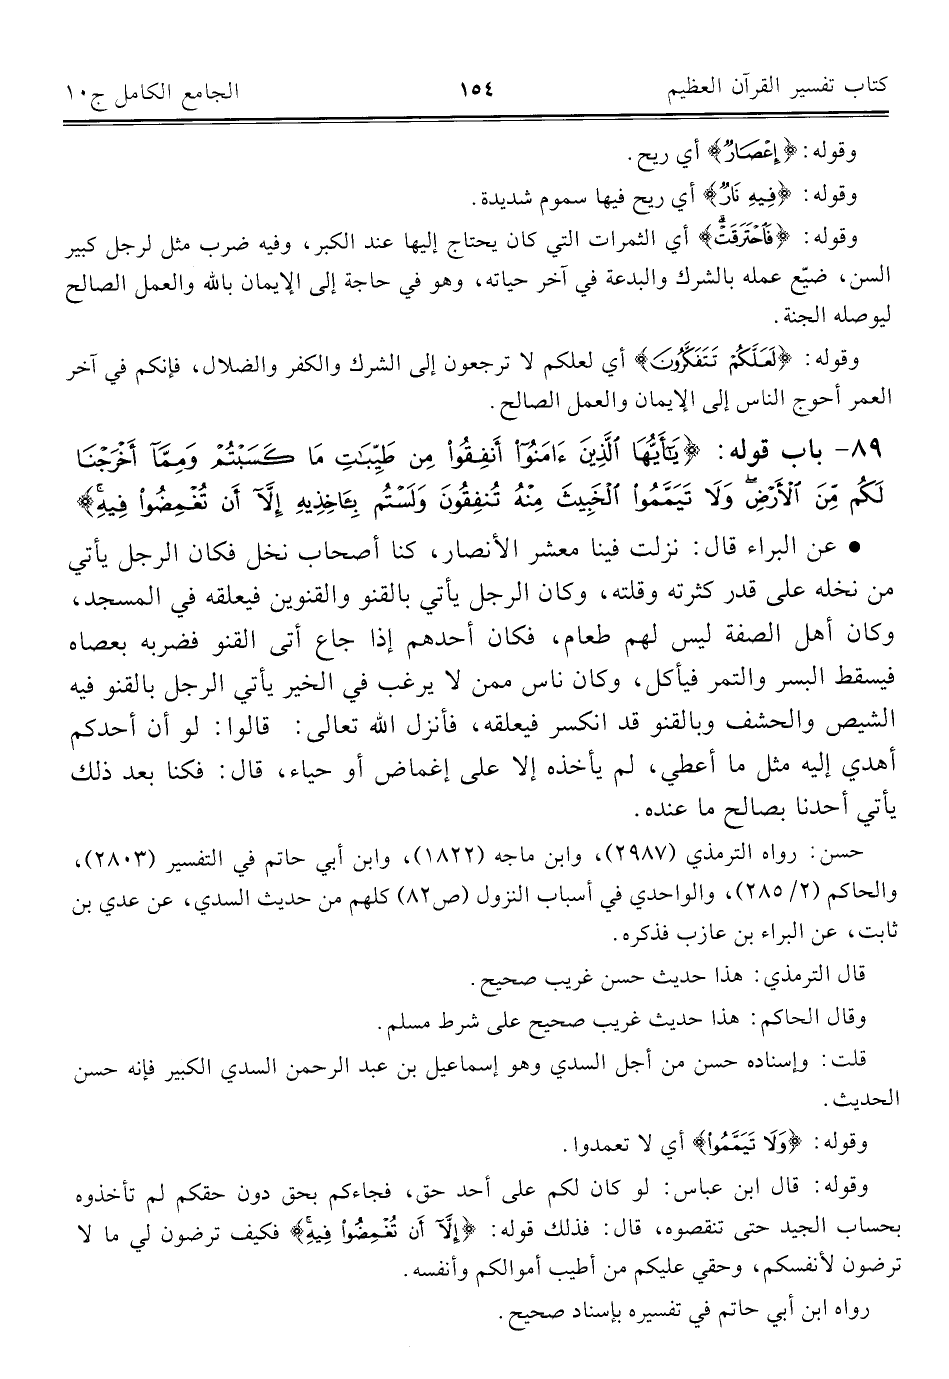 كتاب تفسير القرآن العظيم ١٥٤ الجامع الكامل ج١٠
وقوله: ﴿إِعْصَارٌ﴾ أي ريح.
وقوله: ﴿فِيهِ نَارٌ﴾ أي ريح فيها سموم شديدة.
وقوله: ﴿فَٱحْتَرَقَتْ﴾ أي الثمرات التي كان يحتاج إليها عند الكبر، وفيه ضرب مثل لرجل كبير
السن، ضيّع عمله بالشرك والبدعة في آخر حياته، وهو في حاجة إلى الإيمان بالله والعمل الصالح
ليوصله الجنة.
وقوله: ﴿لَعَلَّكُمْ تَتَفَكَّرُونَ﴾ أي لعلكم لا ترجعون إلى الشرك والكفر والضلال، فإنكم في آخر
العمر أحوج الناس إلى الإيمان والعمل الصالح.
٨٩- باب قوله: ﴿يَٰٓأَيُّهَا ٱلَّذِينَ ءَامَنُوٓا۟ أَنفِقُوا۟ مِن طَيِّبَٰتِ مَا كَسَبْتُمْ وَمِمَّآ أَخْرَجْنَا
لَكُم مِّنَ ٱلْأَرْضِ ۖ وَلَا تَيَمَّمُوا۟ ٱلْخَبِيثَ مِنْهُ تُنفِقُونَ وَلَسْتُم بِـَٔاخِذِيهِ إِلَّآ أَن تُغْمِضُوا۟ فِيهِ ۚ﴾
• عن البراء قال: نزلت فينا معشر الأنصار، كنا أصحاب نخل فكان الرجل يأتي
من نخله على قدر كثرته وقلته، وكان الرجل يأتي بالقنو والقنوين فيعلقه في المسجد،
وكان أهل الصفة ليس لهم طعام، فكان أحدهم إذا جاع أتى القنو فضربه بعصاه
فيسقط البسر والتمر فيأكل، وكان ناس ممن لا يرغب في الخير يأتي الرجل بالقنو فيه
الشيص والحشف وبالقنو قد انكسر فيعلقه، فأنزل الله تعالى: قالوا: لو أن أحدكم
أهدي إليه مثل ما أعطي، لم يأخذه إلا على إغماض أو حياء، قال: فكنا بعد ذلك
يأتي أحدنا بصالح ما عنده.
حسن: رواه الترمذي (٢٩٨٧)، وابن ماجه (١٨٢٢)، وابن أبي حاتم في التفسير (٢٨٠٣)،
والحاكم (٢/ ٢٨٥)، والواحدي في أسباب النزول (ص٨٢) كلهم من حديث السدي، عن عدي بن
ثابت، عن البراء بن عازب فذكره.
قال الترمذي: هذا حديث حسن غريب صحيح.
وقال الحاكم: هذا حديث غريب صحيح على شرط مسلم.
قلت: وإسناده حسن من أجل السدي وهو إسماعيل بن عبد الرحمن السدي الكبير فإنه حسن
الحديث.
وقوله: ﴿وَلَا تَيَمَّمُوا۟﴾ أي لا تعمدوا.
وقوله: قال ابن عباس: لو كان لكم على أحد حق، فجاءكم بحق دون حقكم لم تأخذوه
بحساب الجيد حتى تنقصوه، قال: فذلك قوله: ﴿إِلَّآ أَن تُغْمِضُوا۟ فِيهِ ۚ﴾ فكيف ترضون لي ما لا
ترضون لأنفسكم، وحقي عليكم من أطيب أموالكم وأنفسه.
رواه ابن أبي حاتم في تفسيره بإسناد صحيح.